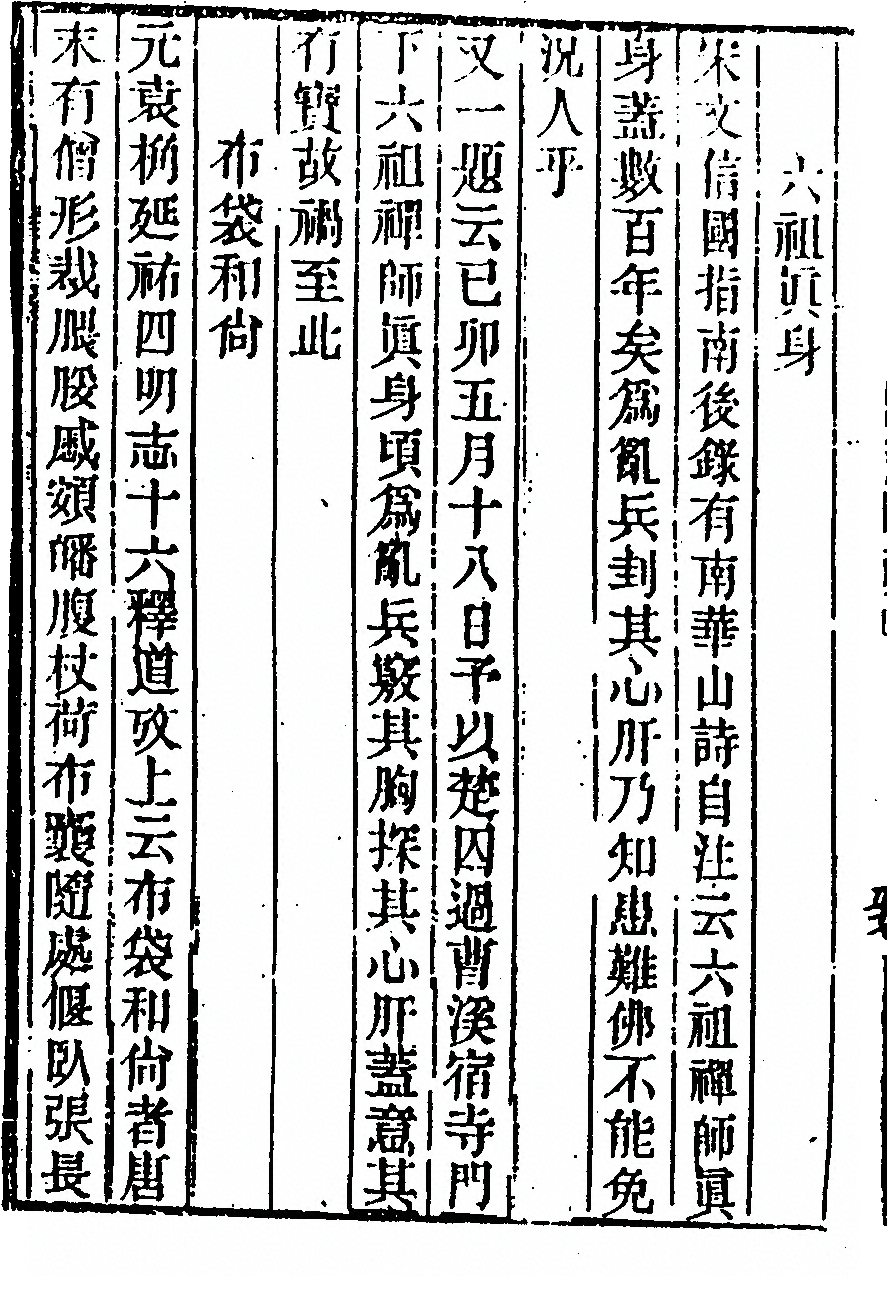 六祖眞身
宋文信國指南後錄有南華山詩自注云六祖禪師眞
身蓋數百年矣爲亂兵刲其心肝乃知患難佛不能免
況人乎
又一題云已卯五月十八日予以楚囚過曹溪宿寺門
下六祖禪師眞身頃爲亂兵㩮其胸探其心肝蓋意其
有寶故禍至此
布袋和尙
元袁桷延祐四明志十六釋道攷上云布袋和尙者唐
末有僧形裁腲脮蹙頞皤腹杖荷布囊隨處偃臥張長